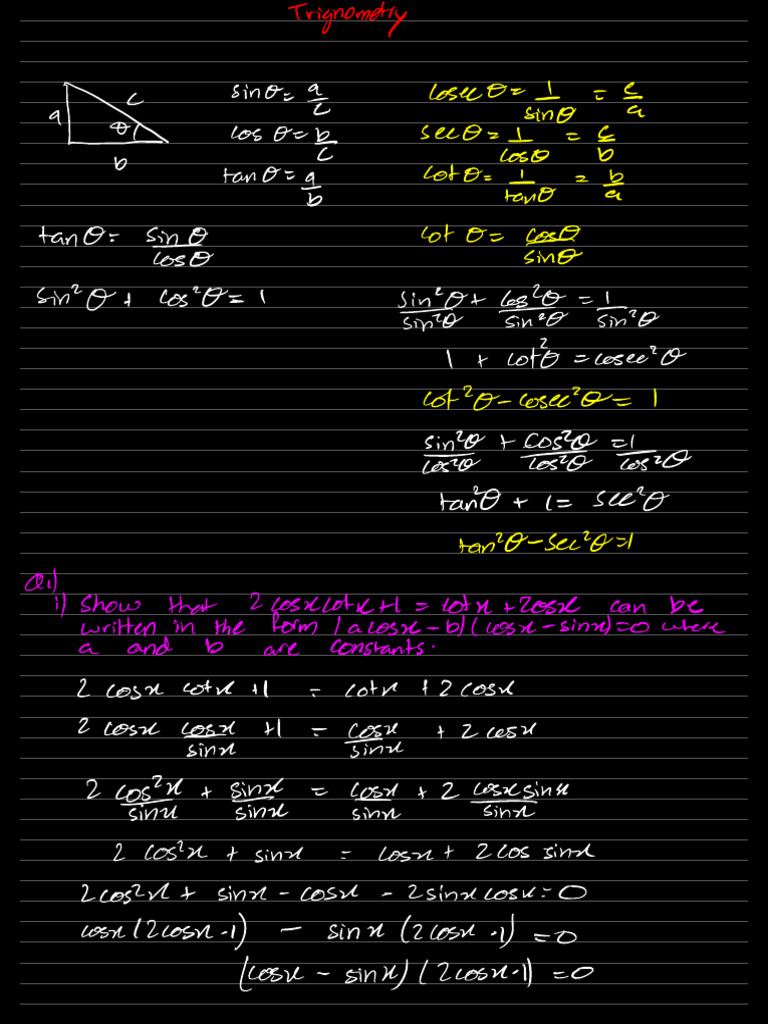 Trignometry
a c θ b
sinθ = a/c cosecθ = 1/sinθ = c/a
cosθ = b/c secθ = 1/cosθ = c/b
tanθ = a/b cotθ = 1/tanθ = b/a
tanθ = sinθ/cosθ cotθ = cosθ/sinθ
sin²θ + cos²θ = 1 sin²θ/sin²θ + cos²θ/sin²θ = 1/sin²θ
1 + cot²θ = cosec²θ
cot²θ - cosec²θ = 1
sin²θ/cos²θ + cos²θ/cos²θ = 1/cos²θ
tan²θ + 1 = sec²θ
tan²θ - sec²θ = 1
Q1)
i) show that 2cosxcotx+1 = cotx+2cosx can be
written in the form (acosx-b)(cosx-sinx)=0 where
a and b are constants.
2 cosx cotx +1 = cotx + 2 cosx
2 cosx cosx/sinx +1 = cosx/sinx + 2 cosx
2 cos²x/sinx + sinx/sinx = cosx/sinx + 2 cosxsinx/sinx
2 cos²x + sinx = cosx + 2 cos sinx
2cos²x + sinx - cosx - 2sinxcosx = 0
cosx(2cosx-1) - sinx(2cosx-1) = 0
(cosx - sinx)(2cosx-1) = 0